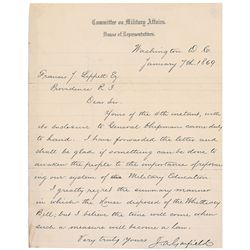 Committee on Military Affairs.
House of Representatives.
Washington D. C.
January 7th 1869
Francis J. Lippitt Esq
Providence R. I.
Dear Sir.
Yours of the 4th instant, with
its enclosure to General Chipman came duly
to hand. I have forwarded the letter and
shall be glad if something can be done to
awaken the people to the importance of reform-
ing our system of Military Education
I greatly regret the summary manner
in which the House disposed of the
Bill, but I believe the time will come when
such a measure will become a law.
Very truly Yours
J. A. Garfield